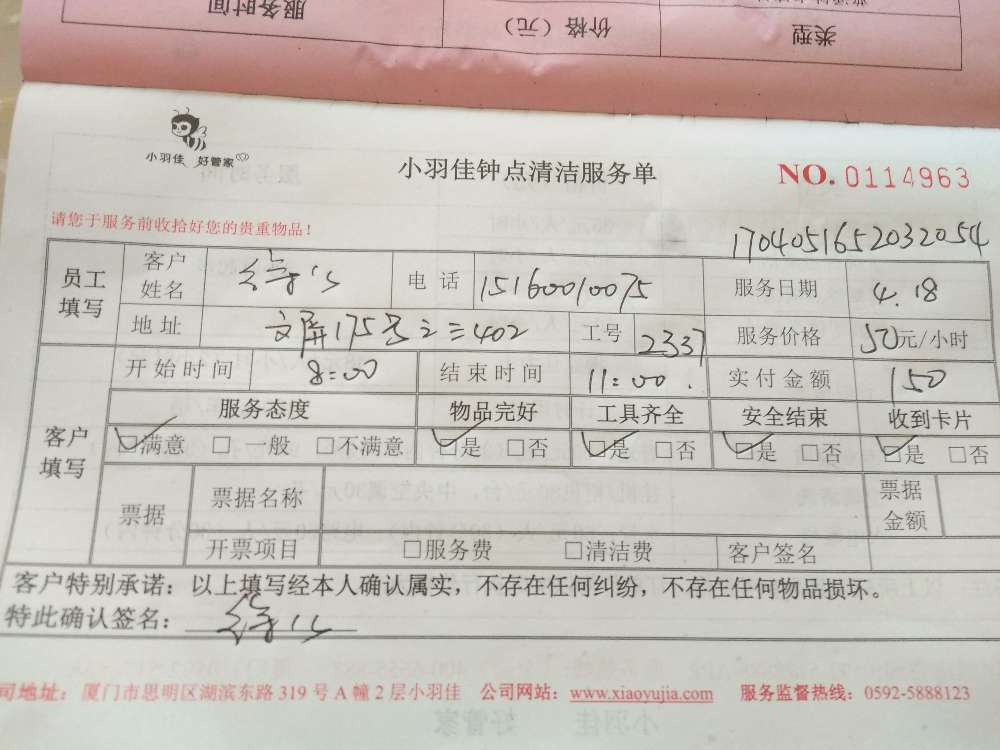 服务时间 价格（元） 类型
小羽佳 好管家
小羽佳钟点清洁服务单 NO. 0114963
请您于服务前收拾好您的贵重物品！
1704051652032054
员工填写 客户姓名 电话 15160010075 服务日期 4.18
地址 文屏175号之三402 工号 2337 服务价格 50元/小时
客户填写 开始时间 8:00 结束时间 11:00. 实付金额 150
服务态度 物品完好 工具齐全 安全结束 收到卡片
☑满意 □一般 □不满意 ☑是 □否 ☑是 □否 ☑是 □否 ☑是 □否
票据 票据名称 票据金额
开票项目 □服务费 □清洁费 客户签名
客户特别承诺：以上填写经本人确认属实，不存在任何纠纷，不存在任何物品损坏。
特此确认签名：
司地址：厦门市思明区湖滨东路319号A幢2层小羽佳 公司网站：www.xiaoyujia.com 服务监督热线：0592-5888123